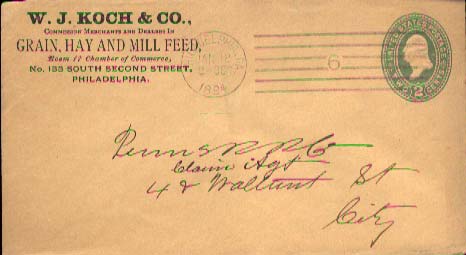 W. J. KOCH & CO.,
COMMISSION MERCHANTS AND DEALERS IN
GRAIN, HAY AND MILL FEED,
Room 17 Chamber of Commerce,
No. 133 SOUTH SECOND STREET,
PHILADELPHIA.
1894
6
UNITED STATES POSTAGE
TWO 2 CENTS
Penna R R Co
Claim Agt
4 & Wallunt St
City